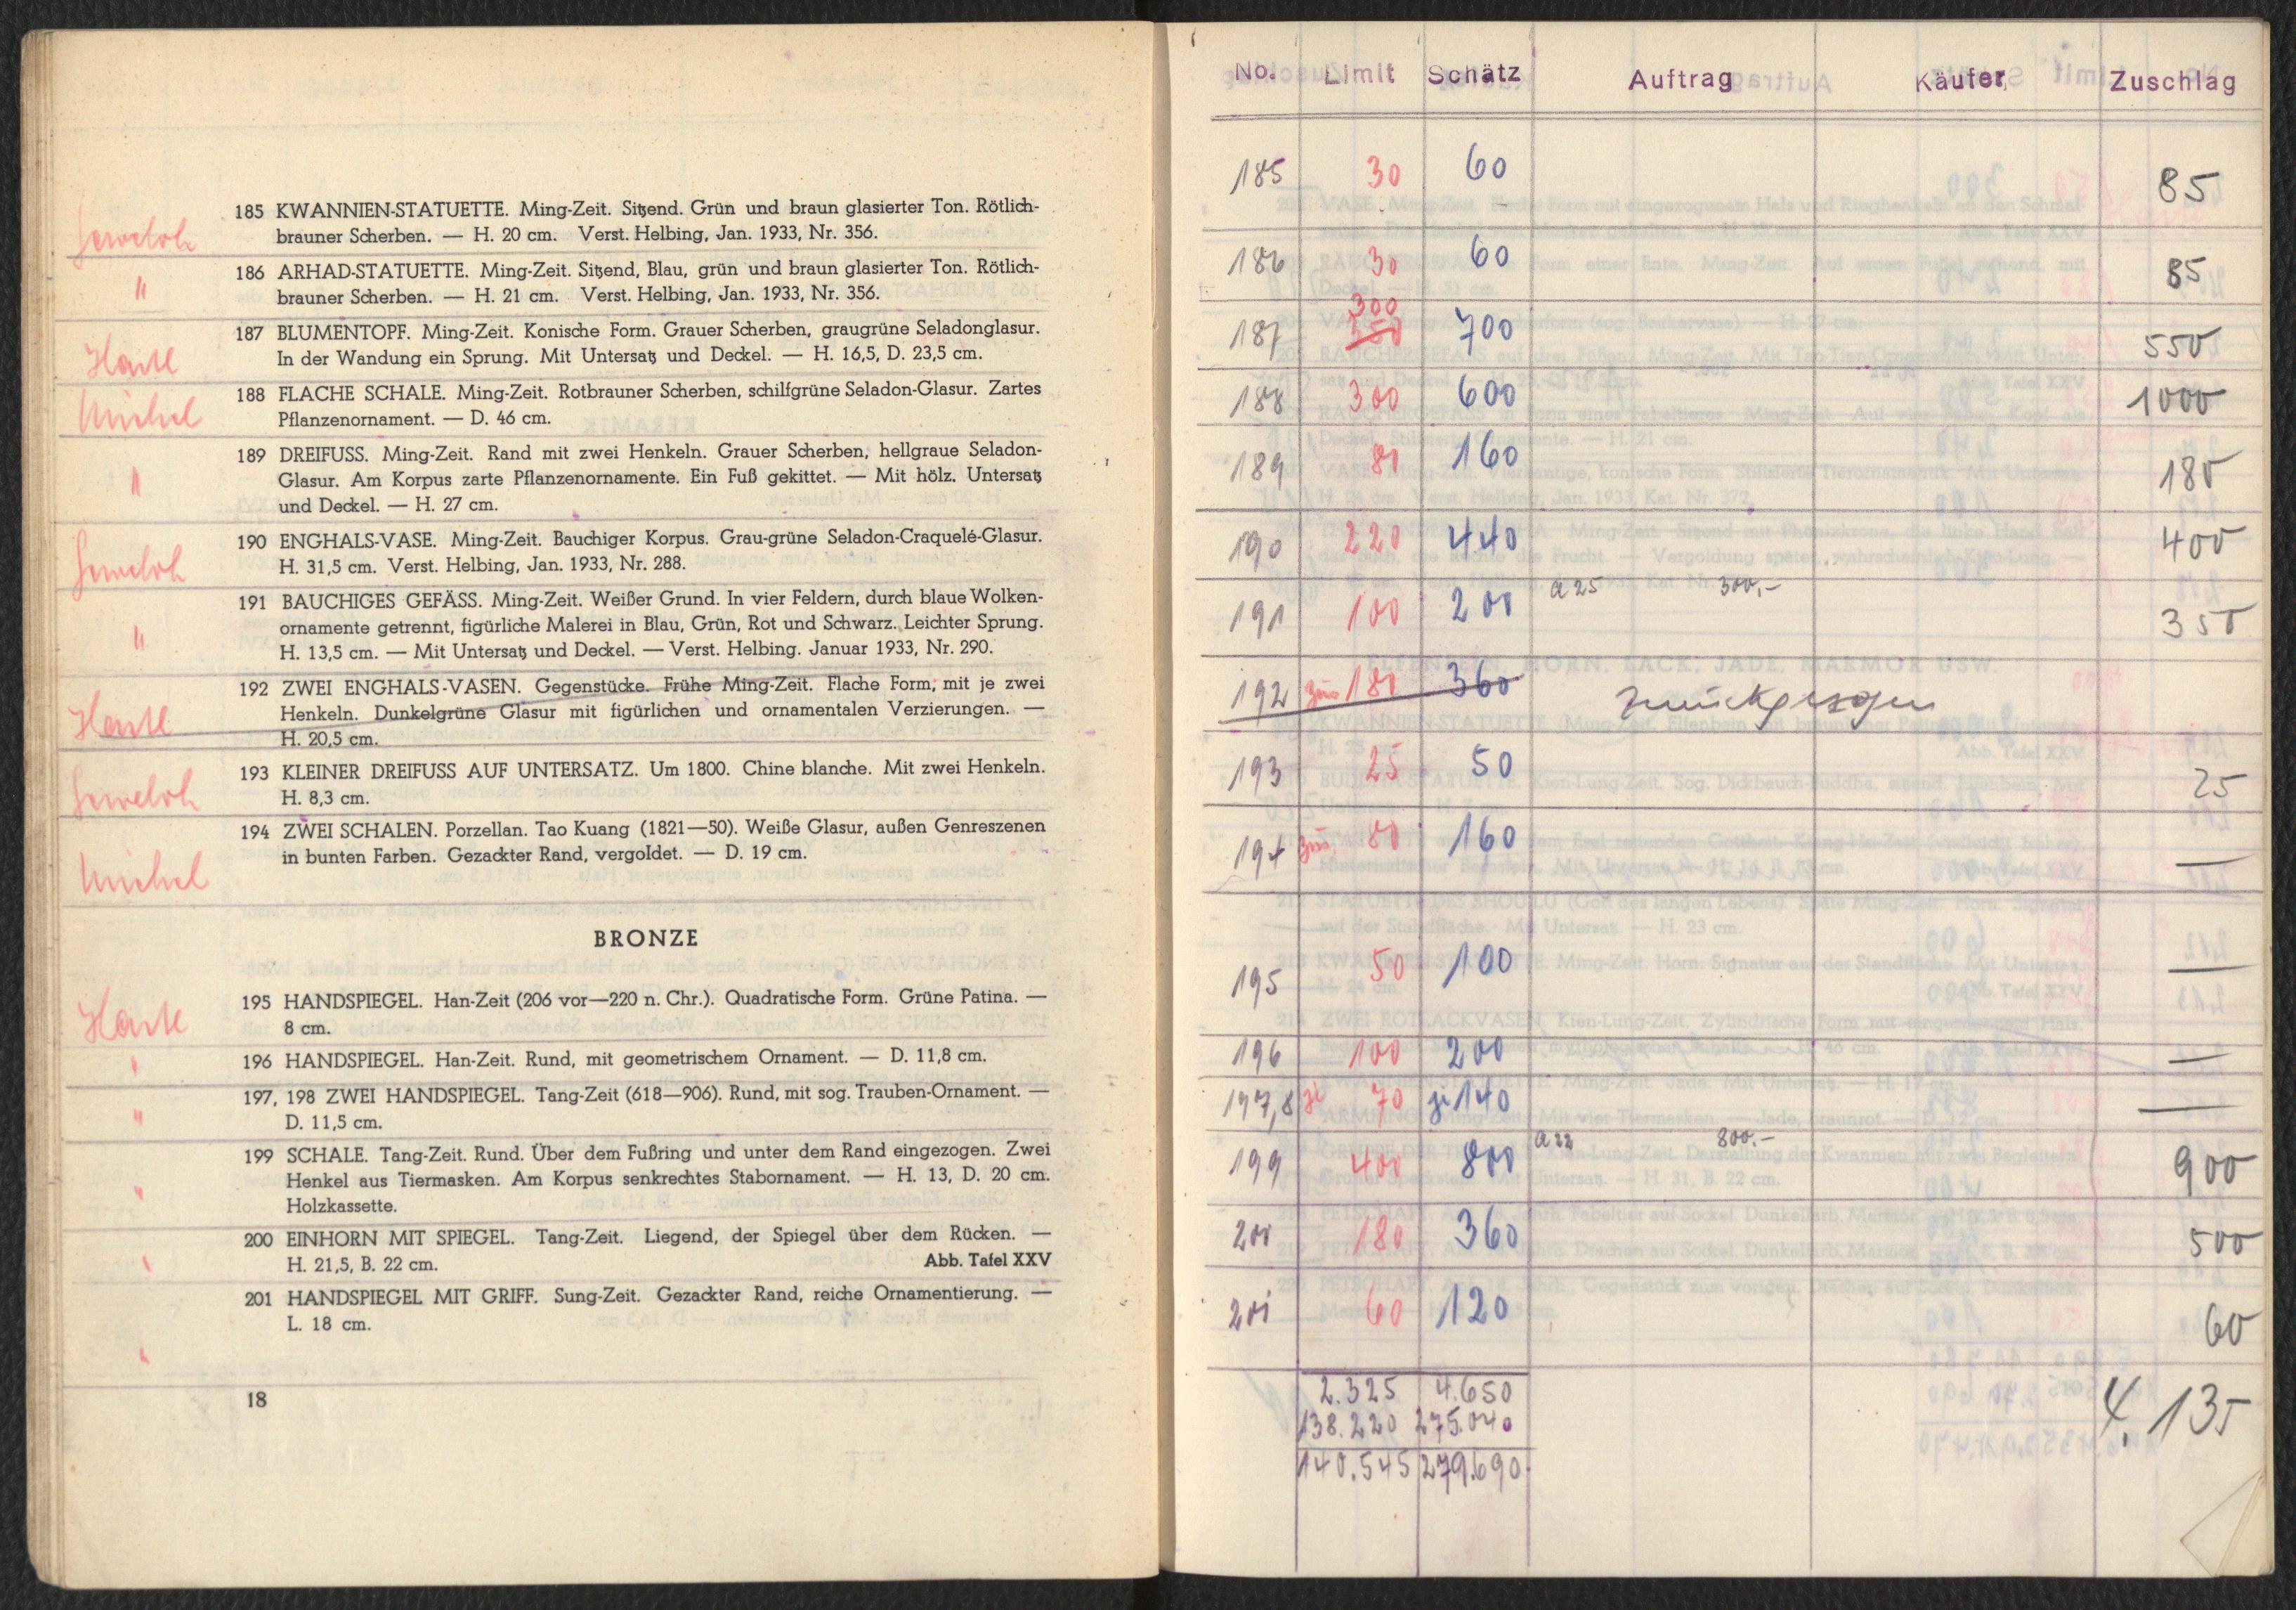 185 KWANNIEN-STATUETTE. Ming-Zeit. Sitzend. Grün und braun glasierter Ton. Rötlich-
brauner Scherben. — H. 20 cm. Verst. Helbing, Jan. 1933, Nr. 356.
"
186 ARHAD-STATUETTE. Ming-Zeit. Sitzend, Blau, grün und braun glasierter Ton. Rötlich-
brauner Scherben. — H. 21 cm. Verst. Helbing, Jan. 1933, Nr. 356.
187 BLUMENTOPF. Ming-Zeit. Konische Form. Grauer Scherben, graugrüne Seladonglasur.
In der Wandung ein Sprung. Mit Untersatz und Deckel. — H. 16,5, D. 23,5 cm.
Michel
188 FLACHE SCHALE. Ming-Zeit. Rotbrauner Scherben, schilfgrüne Seladon-Glasur. Zartes
Pflanzenornament. — D. 46 cm.
"
189 DREIFUSS. Ming-Zeit. Rand mit zwei Henkeln. Grauer Scherben, hellgraue Seladon-
Glasur. Am Korpus zarte Pflanzenornamente. Ein Fuß gekittet. — Mit hölz. Untersatz
und Deckel. — H. 27 cm.
190 ENGHALS-VASE. Ming-Zeit. Bauchiger Korpus. Grau-grüne Seladon-Craquelé-Glasur.
H. 31,5 cm. Verst. Helbing, Jan. 1933, Nr. 288.
"
191 BAUCHIGES GEFÄSS. Ming-Zeit. Weißer Grund. In vier Feldern, durch blaue Wolken-
ornamente getrennt, figürliche Malerei in Blau, Grün, Rot und Schwarz. Leichter Sprung.
H. 13,5 cm. — Mit Untersatz und Deckel. — Verst. Helbing. Januar 1933, Nr. 290.
192 ZWEI ENGHALS-VASEN. Gegenstücke. Frühe Ming-Zeit. Flache Form, mit je zwei
Henkeln. Dunkelgrüne Glasur mit figürlichen und ornamentalen Verzierungen. —
H. 20,5 cm.
193 KLEINER DREIFUSS AUF UNTERSATZ. Um 1800. Chine blanche. Mit zwei Henkeln.
H. 8,3 cm.
Michel
194 ZWEI SCHALEN. Porzellan. Tao Kuang (1821—50). Weiße Glasur, außen Genreszenen
in bunten Farben. Gezackter Rand, vergoldet. — D. 19 cm.
BRONZE
195 HANDSPIEGEL. Han-Zeit (206 vor—220 n. Chr.). Quadratische Form. Grüne Patina. —
8 cm.
"
196 HANDSPIEGEL. Han-Zeit. Rund, mit geometrischem Ornament. — D. 11,8 cm.
"
197, 198 ZWEI HANDSPIEGEL. Tang-Zeit (618—906). Rund, mit sog. Trauben-Ornament. —
D. 11,5 cm.
"
199 SCHALE. Tang-Zeit. Rund. Über dem Fußring und unter dem Rand eingezogen. Zwei
Henkel aus Tiermasken. Am Korpus senkrechtes Stabornament. — H. 13, D. 20 cm.
Holzkassette.
"
200 EINHORN MIT SPIEGEL. Tang-Zeit. Liegend, der Spiegel über dem Rücken. —
H. 21,5, B. 22 cm. Abb. Tafel XXV
"
201 HANDSPIEGEL MIT GRIFF. Sung-Zeit. Gezackter Rand, reiche Ornamentierung. —
L. 18 cm.
18
No. Limit Schätz Auftrag Käufer Zuschlag
185 30 60 85
186 30 60 85
300
187 350 700 550
188 300 600 1000
189 80 160 180
190 220 440 400
a 25 300,-
191 100 200 350
192 180 360 zurückgezogen
193 25 50 25
194 80 160 —
195 50 100 —
196 100 200 —
197,8 je 70 je 140 —
a 22 800.-
199 400 800 900
200 180 360 500
201 60 120 60
2.325 4.650 4.135
138.220 275.040
140.545 279.690